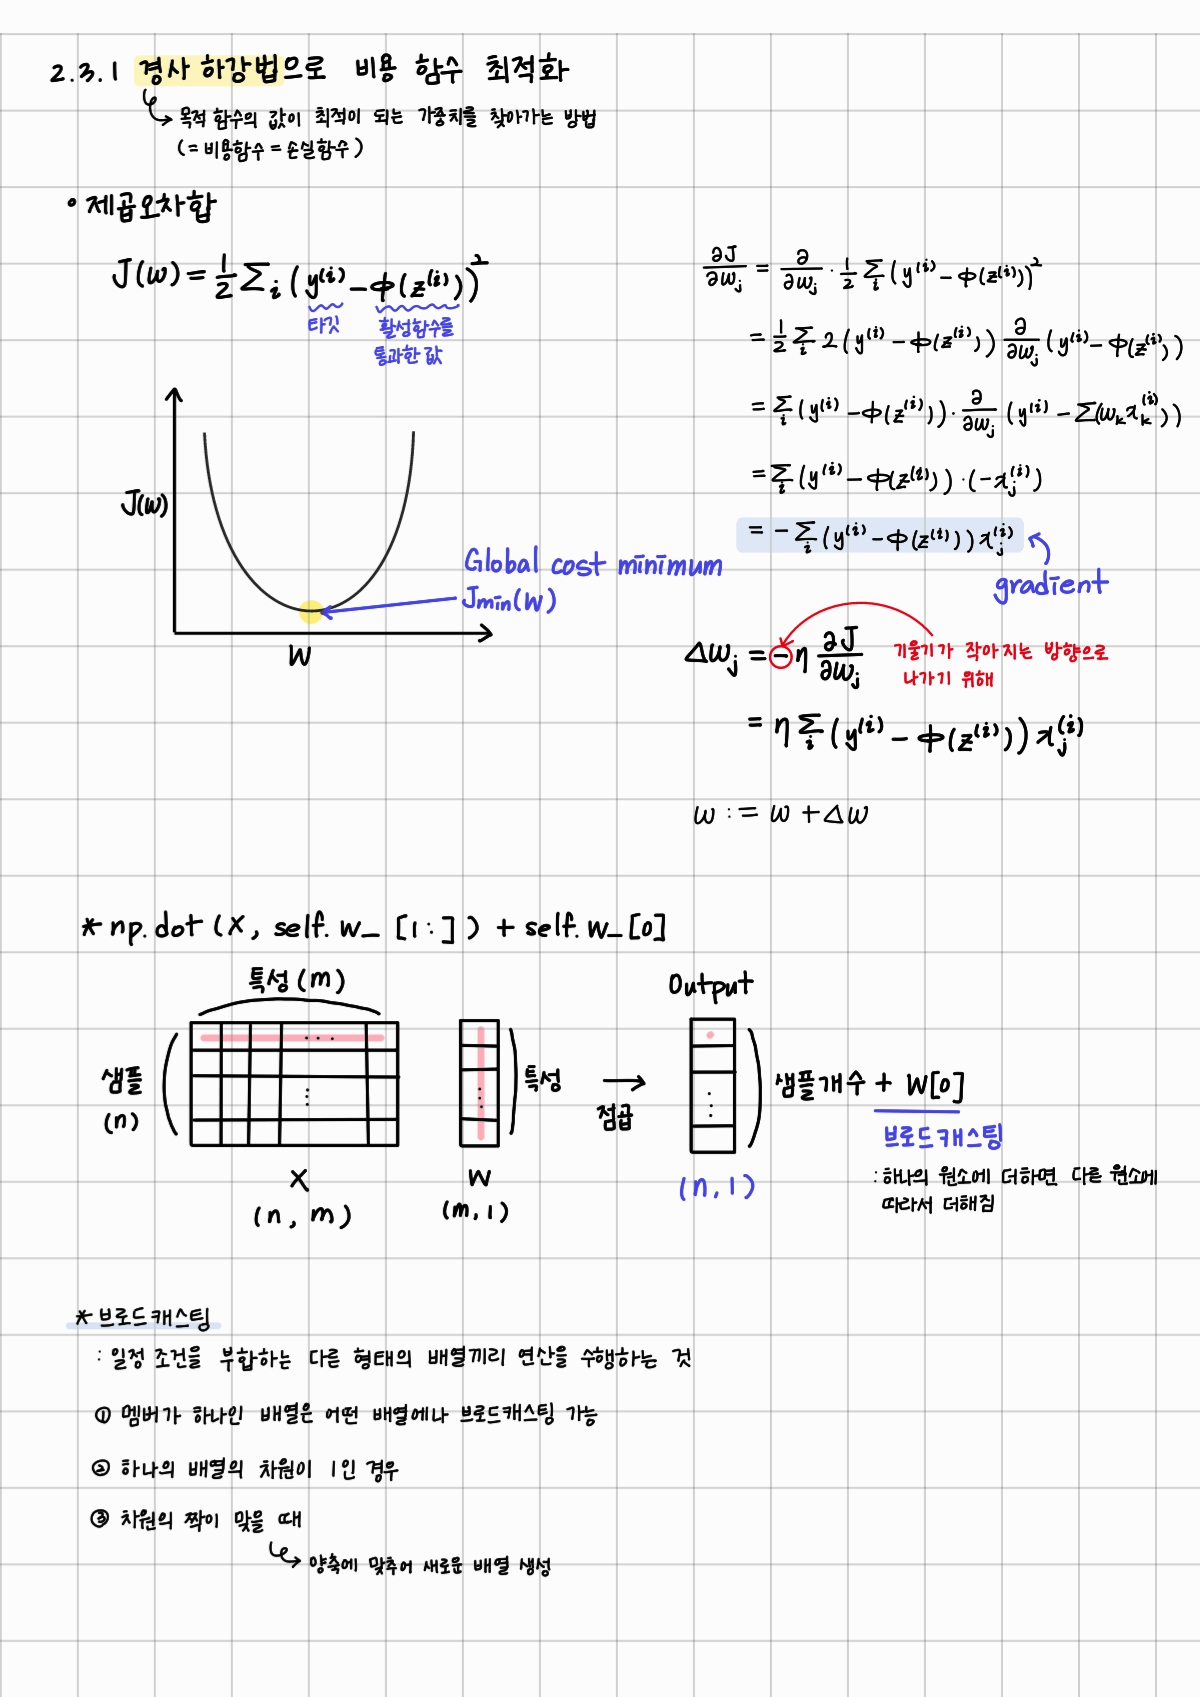 2.3.1 경사 하강법으로 비용 함수 최적화
목적 함수의 값이 최적이 되는 가중치를 찾아가는 방법
(= 비용함수 = 손실함수)
• 제곱오차합
J(w) = 1/2 Σi (y⁽ⁱ⁾ - Φ(z⁽ⁱ⁾))²
타깃
활성함수를
통과한 값
J(w)
w
Global cost minimum
Jmin(w)
∂J/∂wj = ∂/∂wj · 1/2 Σi (y⁽ⁱ⁾ - Φ(z⁽ⁱ⁾))²
= 1/2 Σi 2(y⁽ⁱ⁾ - Φ(z⁽ⁱ⁾)) ∂/∂wj (y⁽ⁱ⁾ - Φ(z⁽ⁱ⁾))
= Σi (y⁽ⁱ⁾ - Φ(z⁽ⁱ⁾)) · ∂/∂wj (y⁽ⁱ⁾ - Σ(wk xk⁽ⁱ⁾))
= Σi (y⁽ⁱ⁾ - Φ(z⁽ⁱ⁾)) · (-xj⁽ⁱ⁾)
= - Σi (y⁽ⁱ⁾ - Φ(z⁽ⁱ⁾)) xj⁽ⁱ⁾
gradient
Δwj = -η ∂J/∂wj
기울기가 작아지는 방향으로
나가기 위해
= η Σi (y⁽ⁱ⁾ - Φ(z⁽ⁱ⁾)) xj⁽ⁱ⁾
w := w + Δw
* np.dot (X, self.w_ [1:]) + self.w_[0]
특성(m)
샘플
(n)
X
(n, m)
특성
w
(m, 1)
→
점곱
Output
(n, 1)
샘플개수 + w[0]
브로드캐스팅
: 하나의 원소에 더하면 다른 원소에
따라서 더해짐
* 브로드캐스팅
: 일정 조건을 부합하는 다른 형태의 배열끼리 연산을 수행하는 것
① 멤버가 하나인 배열은 어떤 배열에나 브로드캐스팅 가능
② 하나의 배열의 차원이 1인 경우
③ 차원의 짝이 맞을 때
양축에 맞추어 새로운 배열 생성